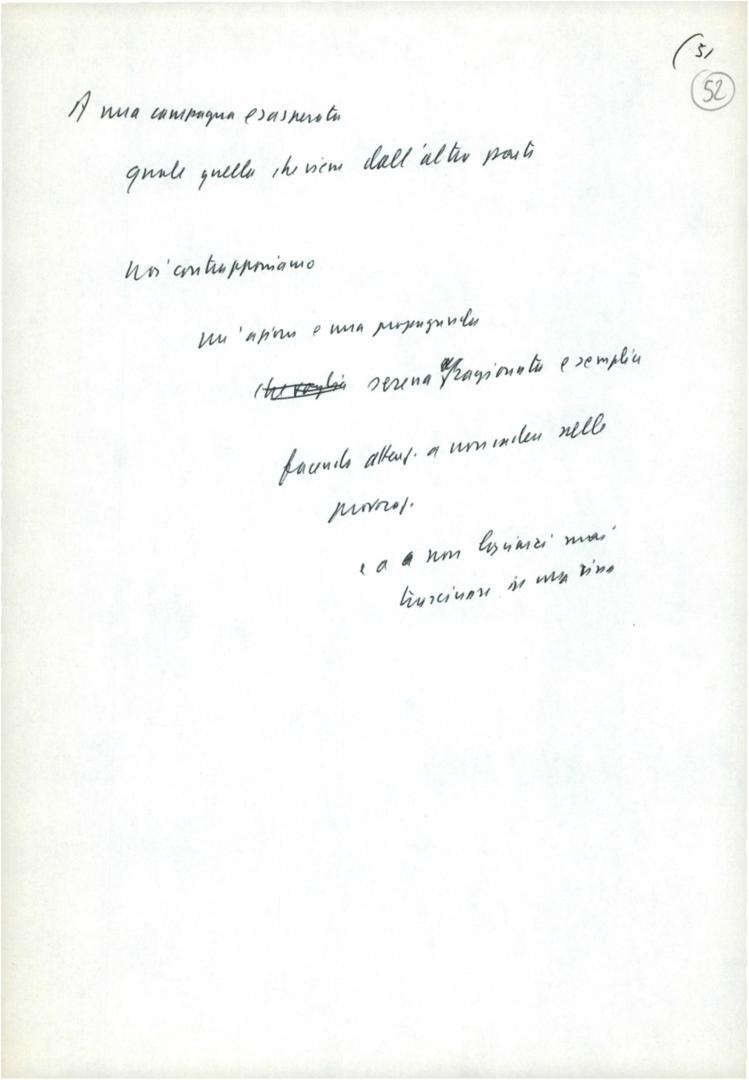 (51
52
A una campagna esasperata
quale quella che viene dall'altra parte
Noi contrapponiamo
un'azione e una propaganda
che voglia serena ragionata e semplice
facendo attenz. a non cadere nelle
provocaz.
e a a non lasciarci mai
trascinare in una rissa